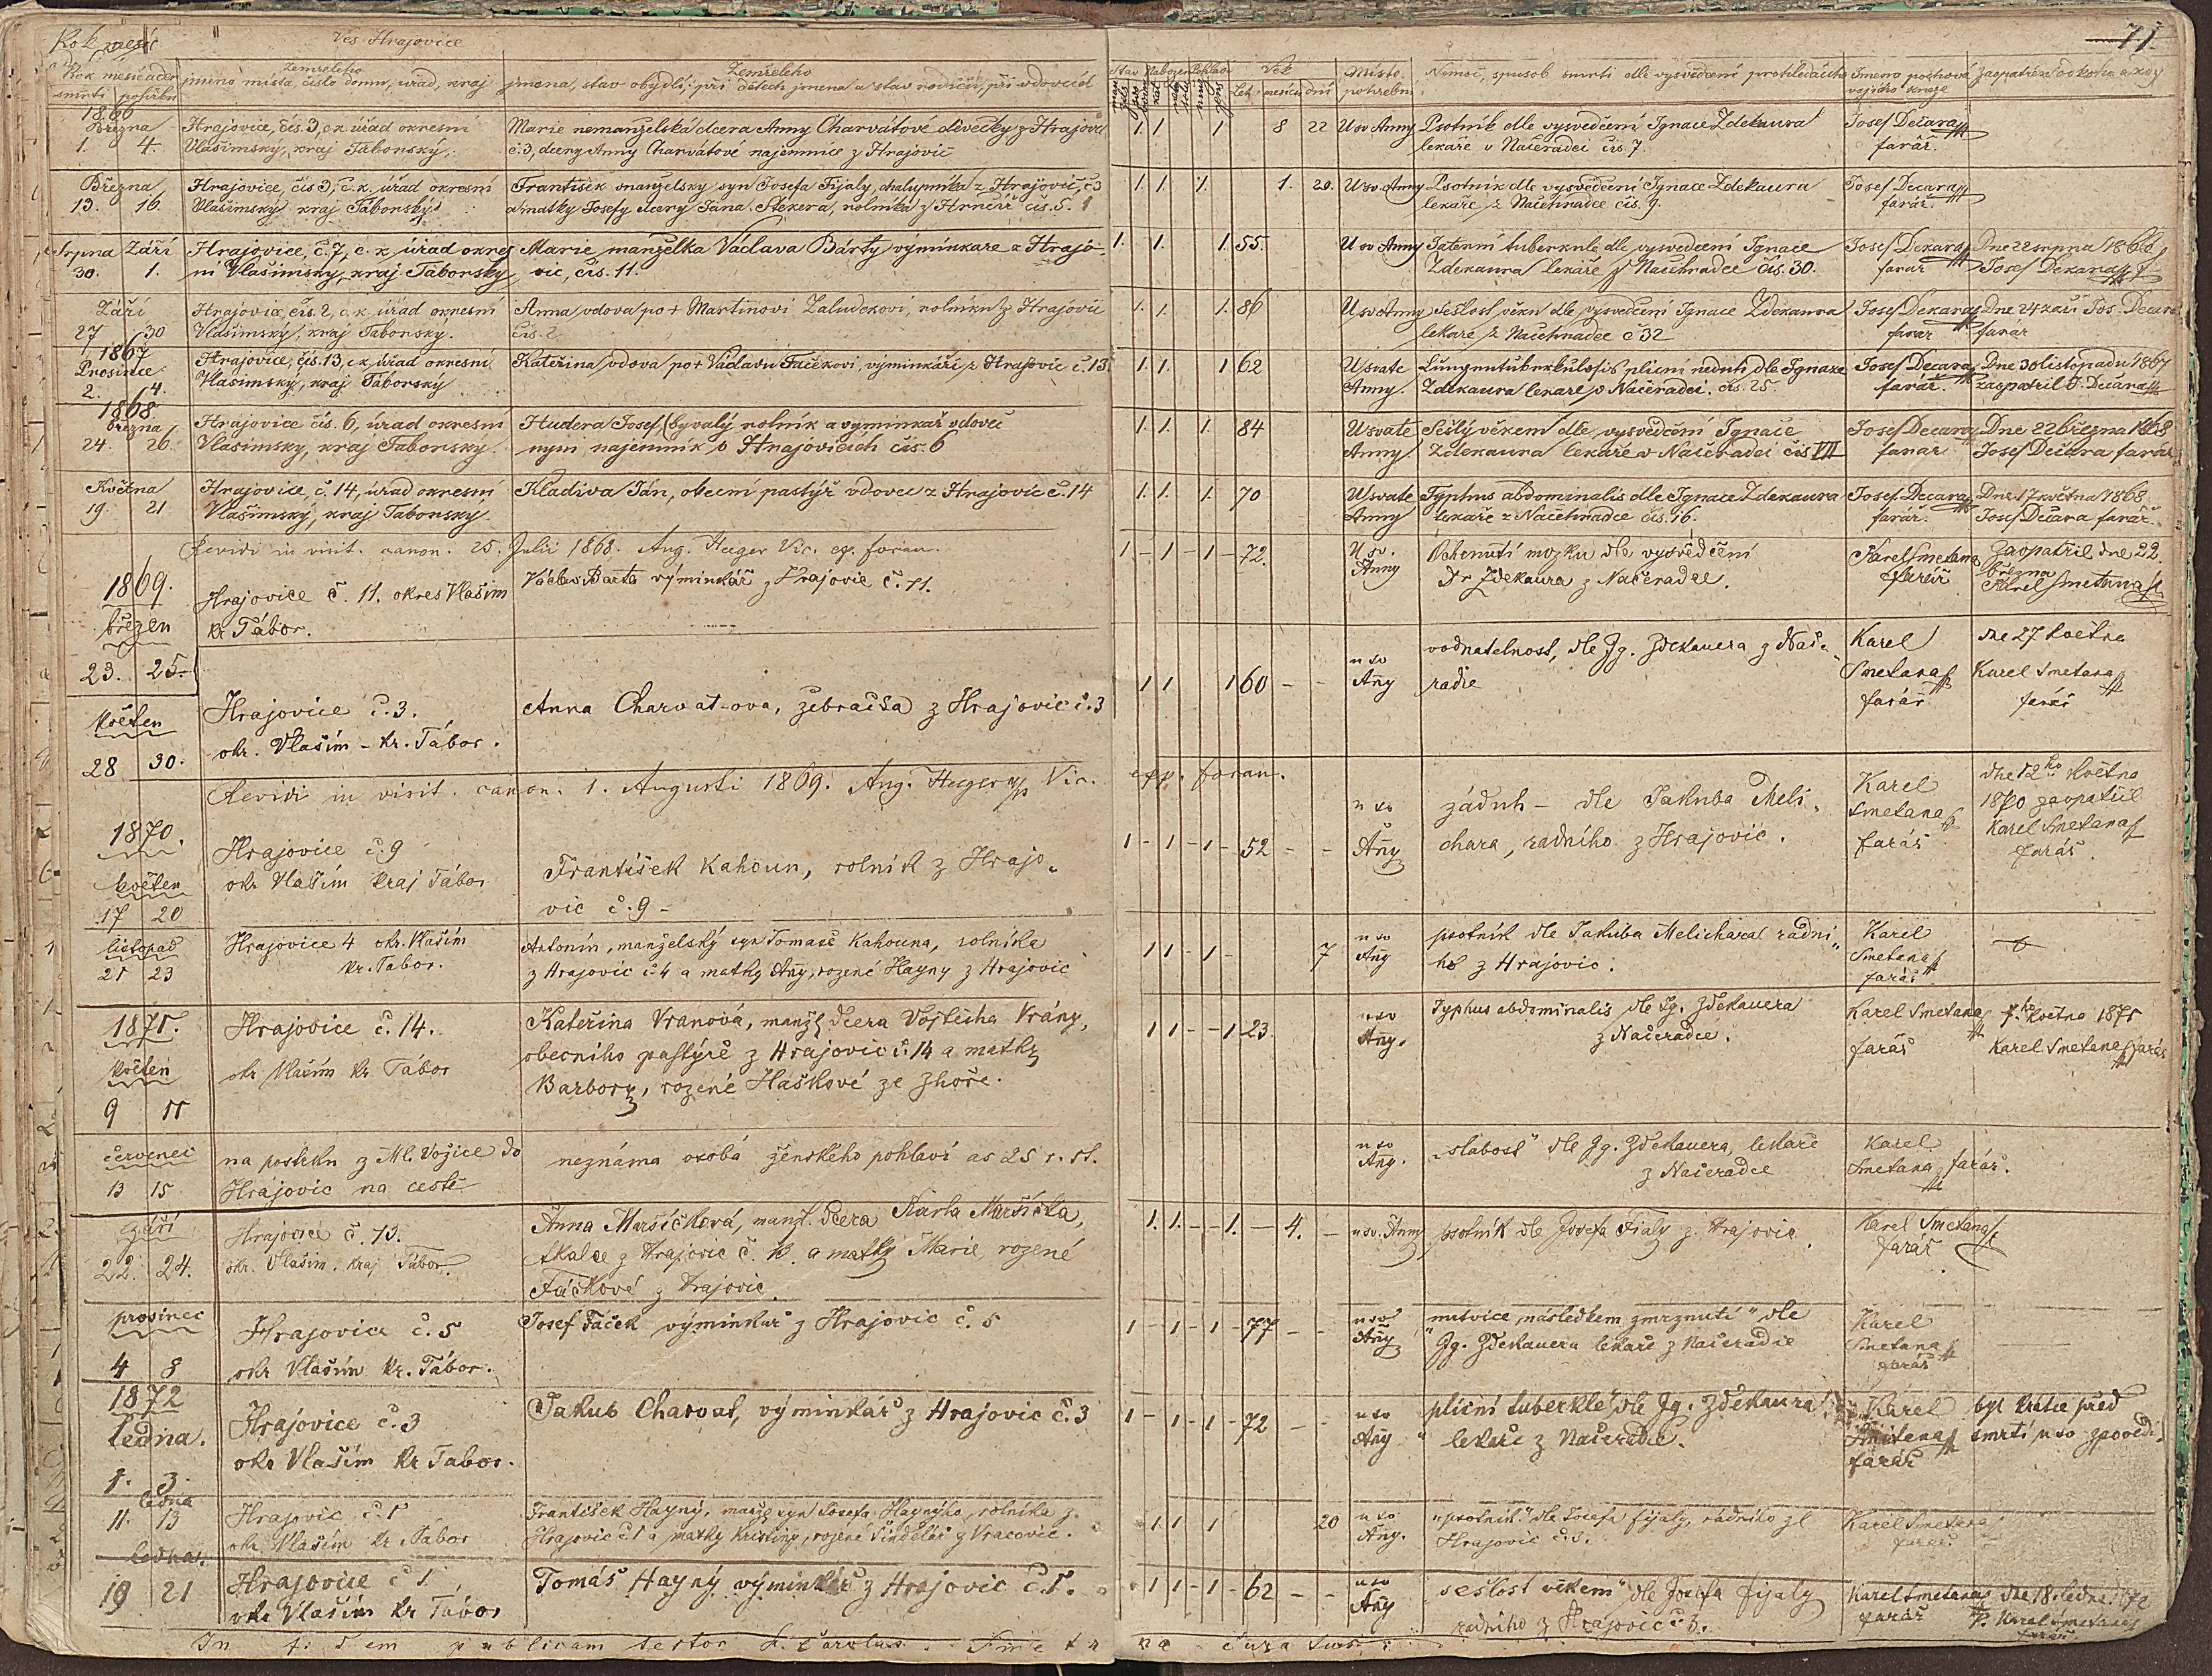 Ves Hrajovice
71.
Rok měsíc a den
smrti pohřbu
Zemřelého
jmeno místa, číslo domu, úřad, kraj
Zemřelého
jmena, stav obydlí, při dětech jmena a stav rodičů, při vdovcích
Stav
Věk
Let měsíců dní
Místo pohřební
Nemoc, spůsob smrti dle vysvědčení
Jmeno
kněze
1866
Března
1. 4.
Hrajovice, čís. 3, c.k. úřad okresní
Vlašimský, kraj Táborský.
Marie nemanželská dcera Anny Charvátové děvečky z Hrajovic
č. 3, dcery Anny Charvátové najemnice z Hrajovic
1. 1. 1 8 22
U sv Anny
Psotník dle vysvědčení Ignace Zdekaura
lékaře v Načeradci čís. 7.
Josef Dečara
farář.
Března
13. 16
Hrajovice, čís 3, c. k. úřad okresní
Vlašimský kraj Táborský
František manželsky syn Josefa Fijaly, chalupníka z Hrajovic, č 3
a matky Josefy dcery Jana Stekera, rolníka z Hrnčíř čís. 5.
1. 1. 1. 1. 20.
U sv. Anny
Psotník dle vysvědčení Ignace Zdekaura
lekaře z Načehradce čís. 9.
Josef Decara
farář.
Srpna Září
30. 1.
Hrajovice, č. 7, c. k. úřad okres
ní Vlašimsky, kraj Táborsky
Marie manželka Václava Bárty výminkare z Hrajo-
vic, čís. 11.
1. 1. 1. 55.
U sv Anny
tuberkule dle vysvedcení Ignace
Zdekaura lekáře z Načehradce čís. 30.
Josef Dekara
farář
Dne 22 srpna 1866
Josef Dekara
Září
27 30
Hrajovice, čís. 2, c. k. úřad okresní
Vlašimský, kraj Táborský.
Anna vdova po + Martinovi Zaludekovi, rolníku z Hrajovic
čís. 2
1. 1. 1. 86
U sv Anny
Sešlost věku dle vysvedcení Ignace Zdekaura
lekaře z Načehradce č 32
Josef Dekara
farář
Dne 24 září Jos. Decara
farár
1867
Prosince
2. 4.
Hrajovice, čis. 13, c.k. úřad okresní
Vlasimsky, kraj Táborsky
Kateřina vdova po + Václavu Fáčekovi, výminkáři z Hrajovic č. 13.
1. 1. 1 62
U svate
Anny.
plicní neduh dle Ignaze
Zdekaura lekare v Načeradci. čís. 25.
Josef Decara
farář.
Dne 30 listopadu 1867
zaopatřil J. Dečara
1868
března
24. 26.
Hrajovice čís. 6, úřad okresní
Vlasimsky, kraj Taborsky.
Hudera Josef, (byvalý rolník a vyminkař vdovec
nyní najemník v Hrajovicích čís. 6
1. 1. 1. 84
U svate
Anny
Sešlý věkem dle vysvědcení Ignace
Zdekaura lekaře v Načeradci čis VII
Josef Decara
farar
Dne 22 března 1868
Josef Dečara farář
Května
19. 21
Hrajovice, č. 14, úřad okresní
Vlašimský, kraj Taborsky.
Kladiva Ján, obecní pastýř vdovec z Hrajovic č. 14
1. 1. 1. 70
U svate
Anny
Typhus abdominalis dle Ignace Zdekaura
lekaře z Načehradce čis. 16.
Josef Decara
farář.
Dne 17 května 1868.
Josef Dečara farář.
Revidi in visit. canon. 25. Julii 1868. Aug. Heger Vic. ep. foran.
1869.
březen
23. 25.
Hrajovice č. 11. okres Vlašim
kr Tábor.
Václav Barta výminkář z Hrajovic č. 11.
1 - 1 - 1 - 72.
U sv.
Anny
Ochrnutí mozku dle vysvědčení
Dr Zdekaura z Načeradce.
Karel Smetana
farář
Zaopatřil dne 22.
března
Karel Smetana
květen
28 30.
Hrajovice č. 3.
okr. Vlašim - kr. Tábor.
Anna Charvat-ova, žebračka z Hrajovic č. 3
1 1 1 60 - -
u sv
Añy
vodnatelnost, dle Jg. Zdekauera z Nače-
radce
Karel
Smetana
farář
dne 27 května
Karel Smetana
farář
Revidi in visit. canon. 1. Augusti 1869. Aug. Heger Vic. epp. foran.
1870.
květen
17 20
Hrajovice č. 9
okr Vlašim kraj Tábor
František Kahoun, rolník z Hrajo-
vic č. 9 -
1 - 1 - 1 - 52 - -
u sv
Añy
záduh - dle Jakuba Meli-
chara, radního z Hrajovic.
Karel
Smetana
farář
dne 12ho května
1870 zaopatřil
Karel Smetana
farář.
listopad
21 23
Hrajovice 4 okr. Vlašim
kr. Tábor.
Antonín, manželský syn Tomaše Kahouna, rolníka
z Hrajovic č 4 a matky Añy, rozené Hayny z Hrajovic
1 1 - 1 - 7
u sv
Añy
psotník dle Jakuba Melichara radní-
ho z Hrajovic.
Karel
Smetana
farář
1871.
květen
9 11
Hrajovice č. 14.
okr Vlašim kr Tábor
Kateřina Vranová, manž. dcera Vojtěcha Vrány,
obecního pastýře z Hrajovic č. 14 a matky
Barbory, rozené Haškové ze Zhoře.
1 1 - - 1 23
u sv
Añy.
Typhus abdominalis dle Ig. Zdekauera
z Načeradce.
Karel Smetana
farář
7.ho května 1871
Karel Smetana farář
červenec
13 15
na postrku z Ml. Vožice do
Hrajovic na cestě
neznáma osobá ženského pohlaví as 25 r. st.
u sv
Añy.
„slabost" dle Jg. Zdekauera, lekaře
z Načeradce
Karel
Smetana farář.
září
22. 24.
Hrajovice č. 13.
okr. Vlašim. kraj Tábor.
Anna Maršíčková, manž. dcera Karla Maršíčka,
tkalce z Hrajovic č. 13. a matky Marie, rozené
Fáčkové z Hrajovic.
1. 1. - - 1. - 4. -
u sv. Anny
psotník dle Josefa Fialy z Hrajovic.
Karel Smetana
farář
prosinec
4 8
Hrajovice č. 5
okr Vlašim kr. Tábor.
Josef Fáček výminkař z Hrajovic č. 5
1 - 1 - 1 - 77 - -
u sv
Añy
„mrtvice, následkem zmrznutí" dle
Jg. Zdekauera lekaře z Načeradce
Karel
Smetana
farář
1872
ledna.
1. 3.
Hrajovice č. 3
okr Vlašim kr Tabor.
Jakub Charvat, výminkář z Hrajovic č. 3
1 - 1 - 1 - 72 -
u sv
Añy
plicní tuberkle" dle Jg. Zdekaura
lekaře z Načeradce.
Karel
Smetana
farář
byl krátce před
smrtí u sv zpovědi.
ledna
11. 13
Hrajovic č. 1
okr Vlašim kr Tábor
František Hayný, manž. syn Josefa Haynýho, rolníka z
Hrajovic č 1 a matky Kristiny, rozené Šindelář z Vracovic.
1 1 1 20
u sv
Añy.
„psotník" dle Josefa fijaly, rádního z
Hrajovic č. 3.
Karel Smetana
farář
ledna.
19 21
Hrajovice č 1
okr Vlašim kr Tábor
Tomáš Hayný výminkář z Hrajovic č. 1.
1 1 - 1 - 62 - -
u sv
Añy
sešlost věkem" dle Josefa fijaly
radního z Hrajovic č 3.
Karel Smetana
farář
dne 18. ledna 1872
P. Karel Smetana
farář.
In fidem publicam testor P. Carolus Smetana